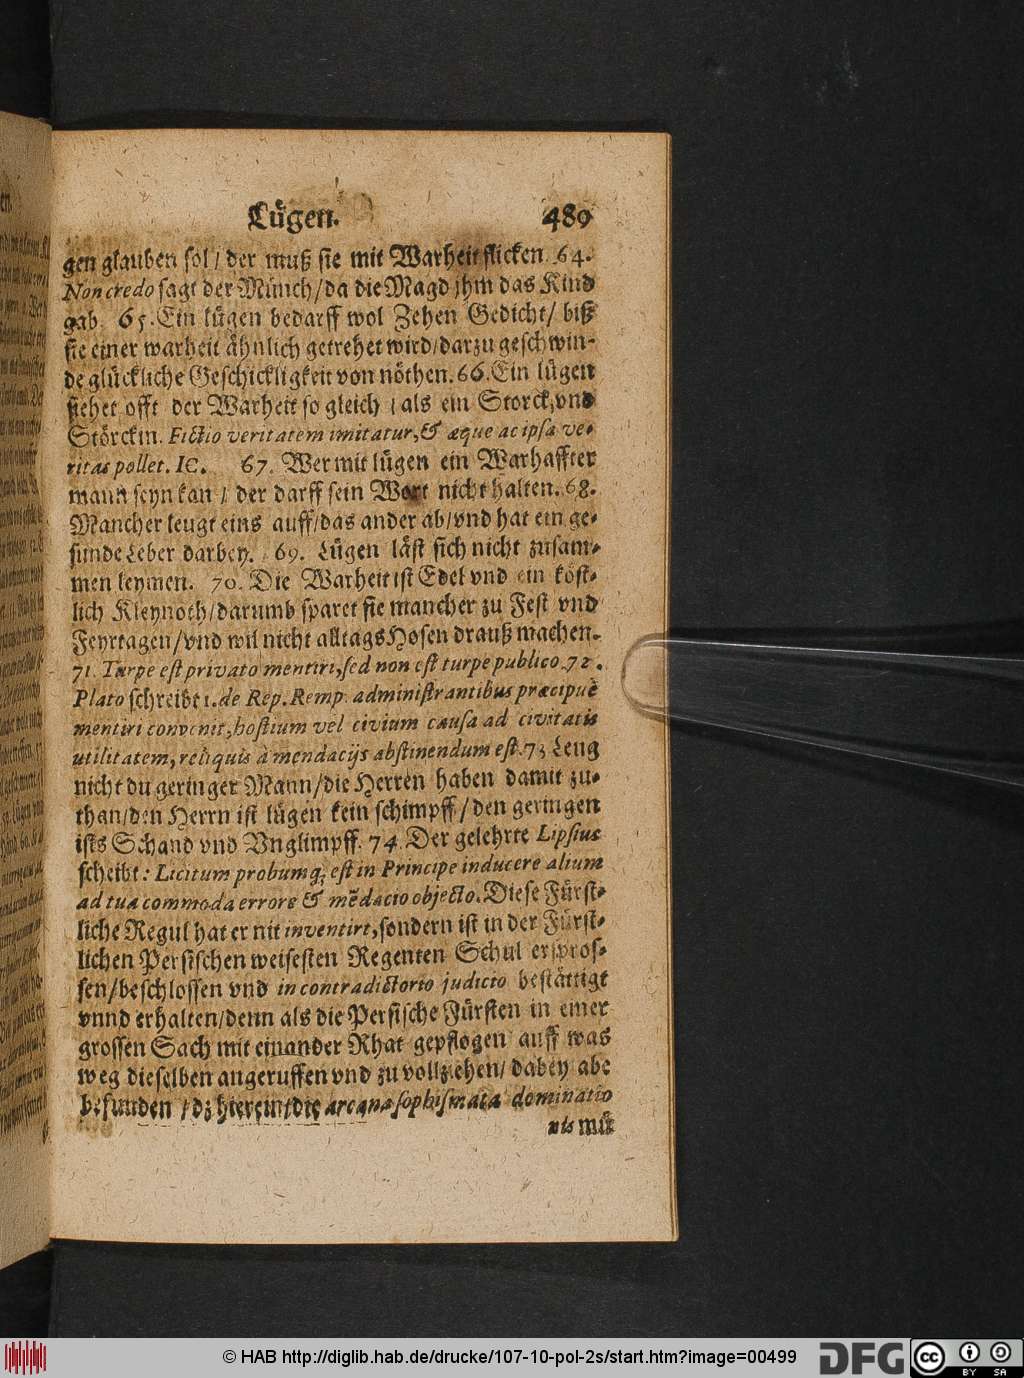 Lügen. 489
gen glauben sol / der muß sie mit Warheit flicken. 64.
Non credo sagt der Münch / da die Magd jhm das Kind
gab. 65. Ein lügen bedarff wol Zehen Gedicht / biß
sie einer warheit ähnlich getrehet wird / darzu geschwin-
de glückliche Geschickligkeit von nöthen. 66. Ein lügen
siehet offt der Warheit so gleich / als ein Storck / vnd
Störckin. Fictio veritatem imitatur, & æque ac ipsa ve-
ritas pollet. IC. 67. Wer mit lügen ein Warhaffter
mann seyn kan / der darff sein Wort nicht halten. 68.
Mancher leugt eins auff / das ander ab / vnd hat ein ge-
sunde Leber darbey. 69. Lügen läst sich nicht zusam-
men leymen. 70. Die Warheit ist Edel vnd ein köst-
lich Kleynoth / darumb sparet sie mancher zu Fest vnd
Feyrtagen / vnd wil nicht alltags Hosen drauß machen.
71. Turpe est privato mentiri, sed non est turpe publico. 72.
Plato schreibt 1. de Rep. Remp. administrantibus præcipuè
mentiri convenit, hostium vel civium causa ad civitatis
utilitatem, reliquis à mendacijs abstinendum est. 73 Leug
nicht du geringer Mann / die Herren haben damit zu-
than / den Herrn ist lügen kein schimpff / den geringen
ists Schand vnd Vnglimpff. 74. Der gelehrte Lipsius
scheibt: Licitum probumq; est in Principe inducere alium
ad tua commoda errore & mēdacio objecto. Diese Fürst-
liche Regul hat er nit inventirt, sondern ist in der Fürst-
lichen Persischen weisesten Regenten Schul erspros-
sen / beschlossen vnd in contradictorio judicio bestättigt
vnnd erhalten / denn als die Persische Fürsten in einer
grossen Sach mit einander Rhat gepflogen auff was
weg dieselben angeruffen vnd zu vollziehen / dabey abe
befunden / dz hierein / die arcana sophismata dominatio
nis mü
© HAB http://diglib.hab.de/drucke/107-10-pol-2s/start.htm?image=00499
DFG
cc
BY SA